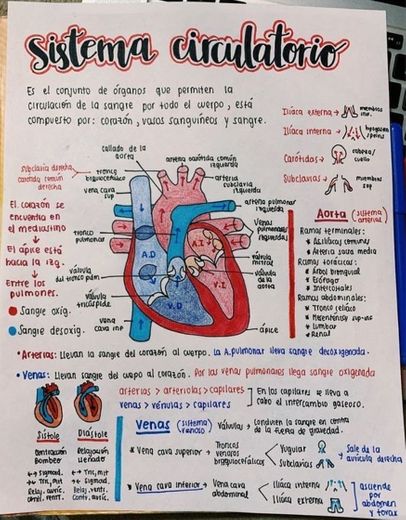 Sistema circulatorio
Es el conjunto de órganos que permiten la
circulación de la sangre por todo el cuerpo, está
compuesto por: corazón, vasos sanguíneos y sangre.
Ilíaca externa → miembros inf.
Ilíaca interna →
Carótidas → cabeza/cuello
Subclavias → miembros sup
callado de la
aorta
arteria carótida común
izquierda
Subclavia derecha
carótida común
derecha
tronco
braquiocefálico
vena cava
sup
arteria
subclavia
izquierda
arteria pulmonar
izquierda
Venas
pulmonares
izquierdas
tronco
pulmonar
A.D
A.I
V.D
V.I
válvula
del tronco pulm
válvula
mitral
válvula
de la
aorta
válvula
tricúspide
vena
cava inf
ápice
El corazón se
encuentra en
el mediastino
El ápice está
hacia la izq.
Entre los
pulmones.
Sangre oxig.
Sangre desoxig.
Aorta (sistema arterial)
Ramas terminales:
* Arteria sacra media
Ramas torácicas:
* Árbol bronquial
* Esófago
* Intercostales
Ramas abdominales:
* Tronco celíaco
* Mesentérica sup-inf
* Lumbar
* Renal
• Arterias: Llevan la sangre del corazón al cuerpo. La A. pulmonar lleva sangre desoxigenada.
• Venas: Llevan sangre del cuepo al corazón. Por las venas pulmonares llega sangre oxigenada
arterias > arteriolas > capilares
venas > vénulas > capilares
En los capilares se lleva a
cabo el intercambio gaseoso.
Sístole
Contracción
Bombeo
Diástole
Relajación
Llenado
Venas (sistema venoso)
Válvulas → conducen la sangre en contra
de la fuerza de gravedad.
* Vena cava superior → Troncos
venosos
braquiocefálicos
Yugular
Subclavias
Sale de la
aurícula derecha
* Vena cava inferior → Vena cava
abdominal
Ilíaca interna
Ilíaca externa
asciende
por
abdomen
y tórax